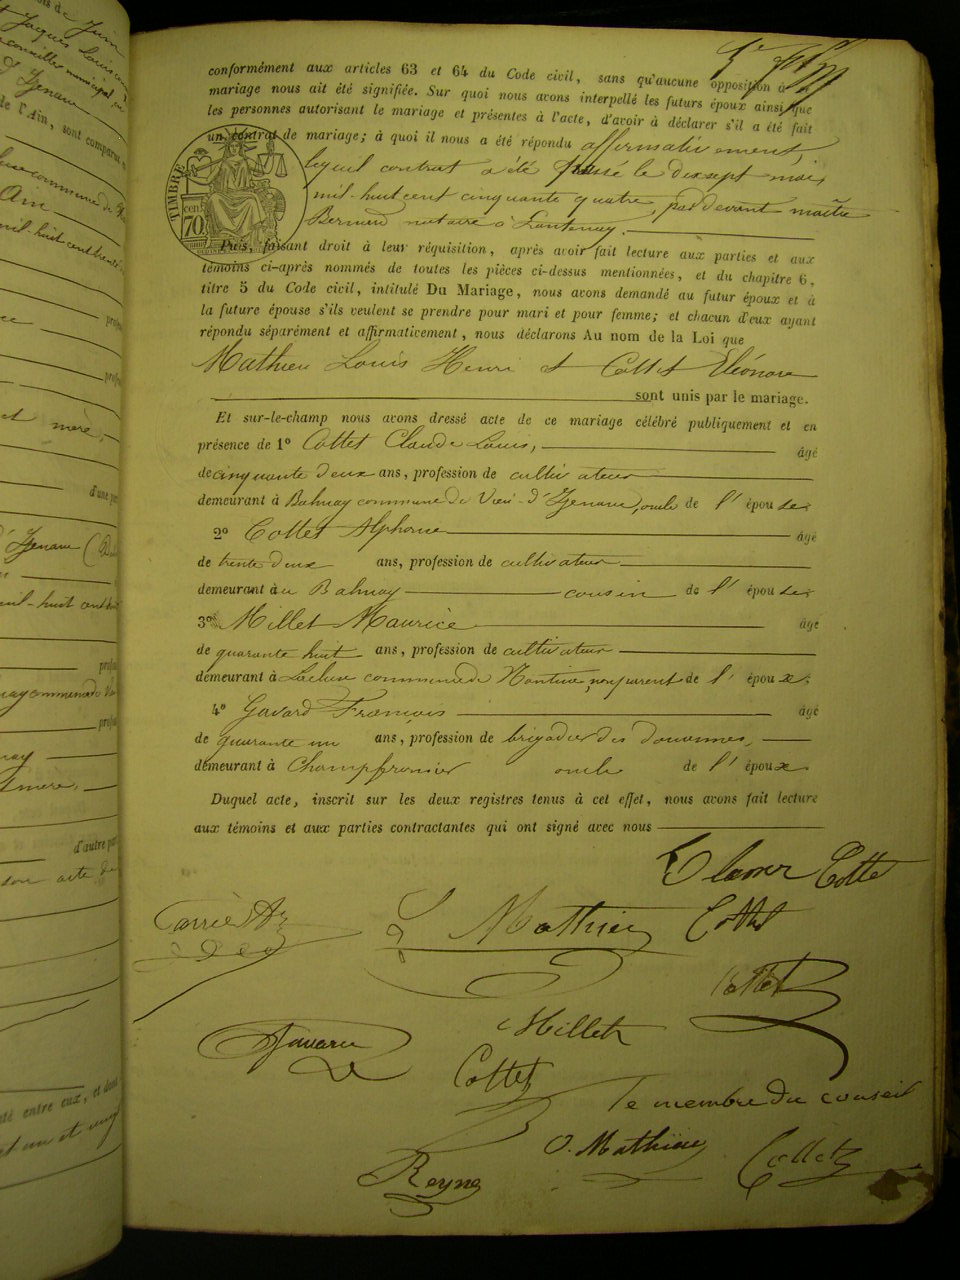 conformément aux articles 63 et 64 du Code civil, sans qu'aucune opposition à
mariage nous ait été signifiée. Sur quoi nous avons interpellé les futurs époux ainsi que
les personnes autorisant le mariage et présentes à l'acte, d'avoir à déclarer s'il a été fait
un contrat de mariage; à quoi il nous a été répondu affirmativement,
lequel contrat a été passé le dix sept mai
mil huit cent cinquante quatre, par devant maître
notaire à Lantenay.
TIMBRE
cen
70
Puis, faisant droit à leur réquisition, après avoir fait lecture aux parties et aux
témoins ci-après nommés de toutes les pièces ci-dessus mentionnées, et du chapitre 6,
titre 5 du Code civil, intitulé Du Mariage, nous avons demandé au futur époux et à
la future épouse s'ils veulent se prendre pour mari et pour femme; et chacun d'eux ayant
répondu séparément et affirmativement, nous déclarons Au nom de la Loi que
Mathieu Louis Henri et Cottet Eléonore
sont unis par le mariage.
Et sur-le-champ nous avons dressé acte de ce mariage célébré publiquement et en
présence de 1º Cottet Claude Louis, âgé
de cinquante deux ans, profession de cultivateur
demeurant à Balmay commune de Vieu-d'Izenave, oncle de l'épouse
2º Cottet Alphonse âgé
de trente deux ans, profession de cultivateur
demeurant au Balmay cousin de l'épouse
3º Millet Maurice âgé
de quarante huit ans, profession de cultivateur
demeurant à Lacluse commune de Nantua, non parent de l'époux
4º Gavard François âgé
de quarante un ans, profession de brigadier des douanes,
demeurant à Champfromier oncle de l'époux
Duquel acte, inscrit sur les deux registres tenus à cet effet, nous avons fait lecture
aux témoins et aux parties contractantes qui ont signé avec nous
Cotte
L Mathieu Cottet
Cottet
Millet
Cottet
Le membre du conseil
O. Mathieu Cottet
Reyne